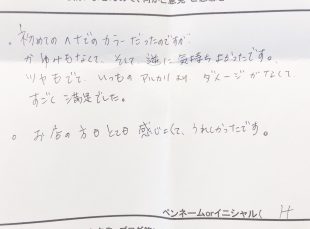 。初めての ヘナでの カラーだったのですが、
かゆみもなくて、そして、逆に 気持ちよかったです。
ツヤもでて、いつもの アルカリ より ダメージ がなくて
すごく 満足でした。
○ お店の方も とても 感じよくて、うれしかったです。
ペンネームorイニシャル( H